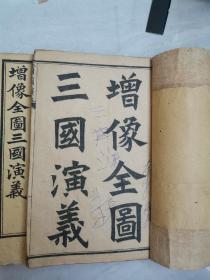 增像全圖
三國演義
增像全圖三國演義